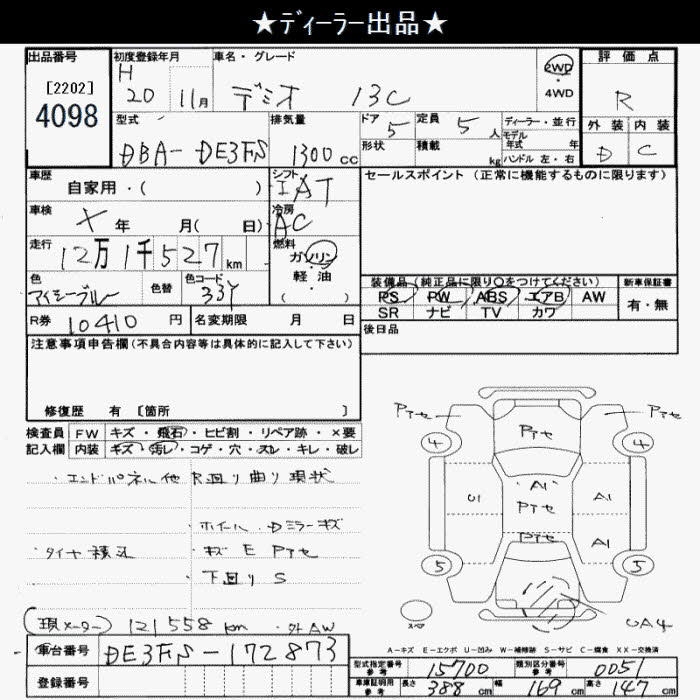 ★ディーラー出品★
出品番号
[2202]
4098
初度登録年月
H
20 11月
車名・グレード
デミオ 13C
2WD
・
4WD
評価点
R
外装 内装
D C
型式
DBA- DE3FS
排気量
1300cc
ドア
5
定員
5人
ディーラー・並行
モデル
年式 年
ハンドル 左・右
形状
積載
kg
車歴
自家用・( )
シフト
IAT
セールスポイント (正常に機能するものに限ります)
車検
年 月( 日)
冷房
AC
走行
12万1千527km
燃料
ガソリン
・
軽・油
( )
色
アイシーブルー
色替
色コード
33Y
装備品 (純正品に限り○をつけてください)
PS PW ABS エアB AW
SR ナビ TV カワ
新車保証書
有・無
R券 10410 円
名変期限 月 日
後日品
注意事項申告欄(不具合内容等は具体的に記入して下さい)
修復歴 有 [箇所 ]
検査員
記入欄
FW キズ・飛石・ヒビ割・リペア跡・×要
内装 キズ・汚レ・コゲ・穴・スレ・キレ・破レ
・エンドパネル他 R廻り曲り現状
・ホイール・Dミラーキズ
・タイヤ積込 ・キズ E アセ
・下廻り S
(現メーター) 121558 km ・外AW
車台番号 DE3FS-172873
登録番号
4
4
U1
A1
A1
A1
5
5
UA4
スペア
A-キズ E-エクボ U-凹み W-補修跡 S-サビ C-腐食 XX-交換済
型式指定番号
参考
15700
類別区分番号
参考
0051
車庫証明用
参考
長さ 388 cm
幅 169 cm
高さ 147 cm